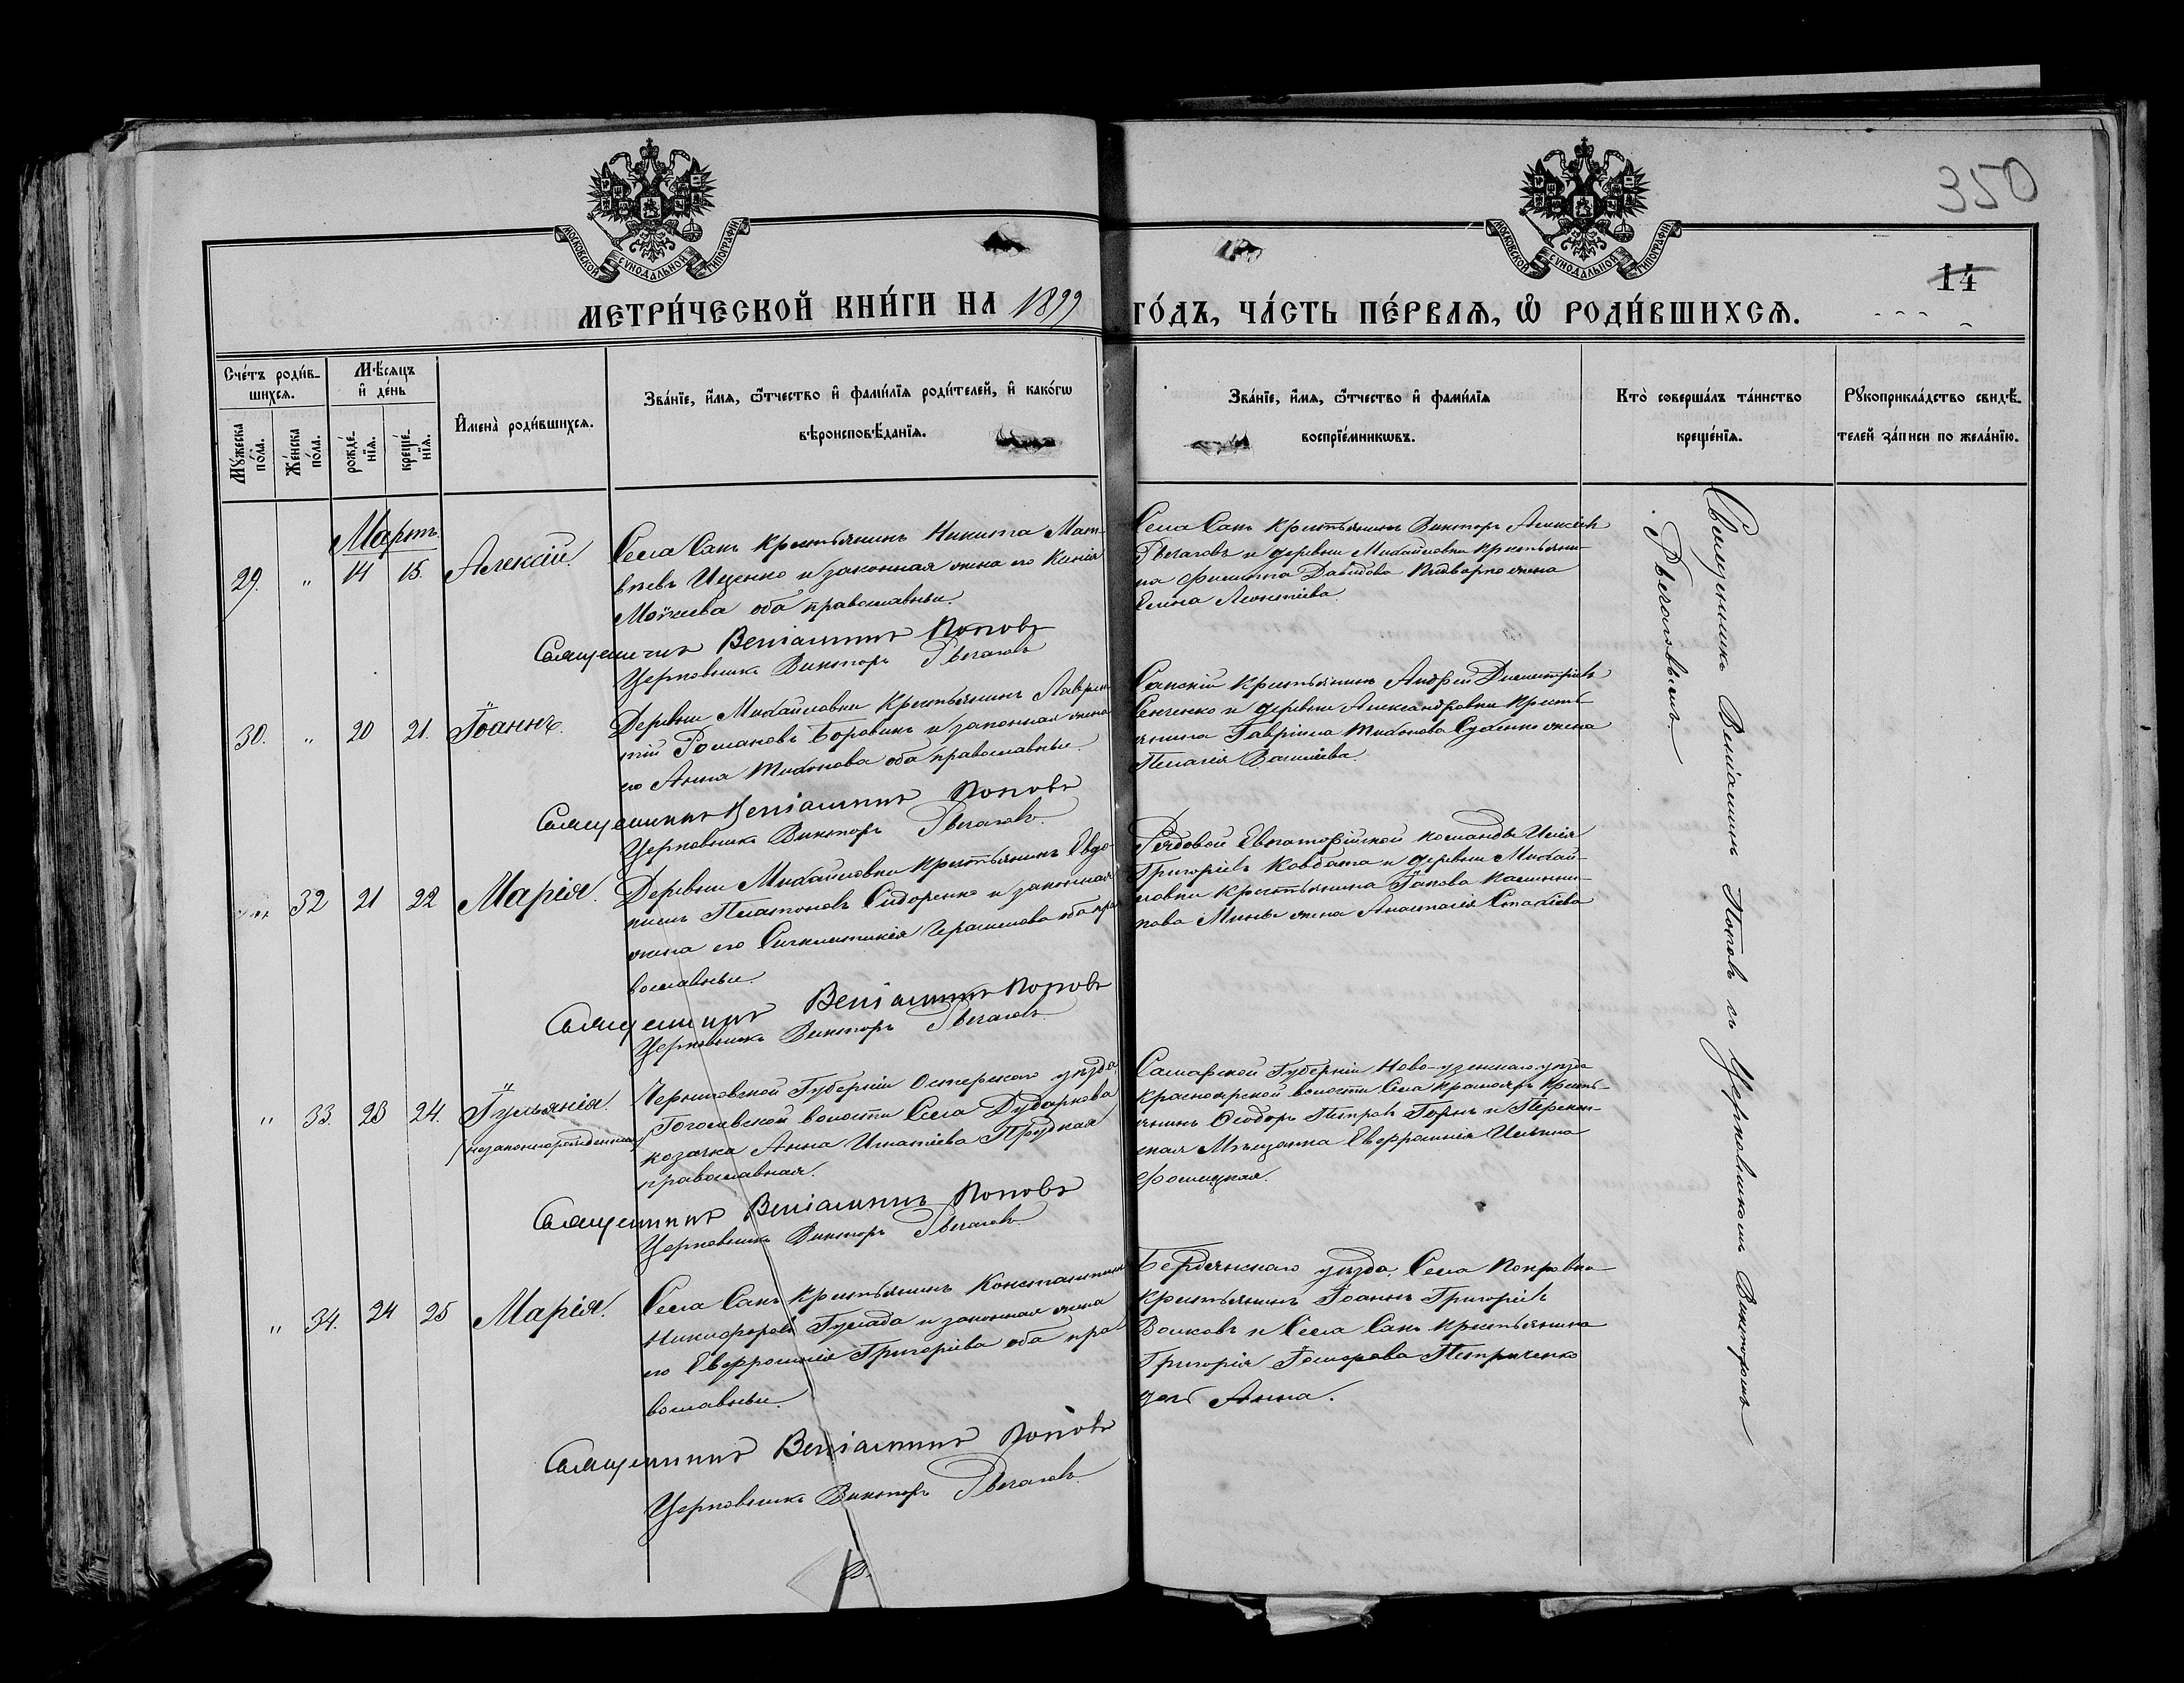 350
14
МОСКОВСКОЙ СѴНОДАЛЬНОЙ ТИПОГРАФІИ
МОСКОВСКОЙ СѴНОДАЛЬНОЙ ТИПОГРАФІИ
МЕТРИ́ЧЕСКОЙ КНИ́ГИ НА 1899 ГО́ДЪ, ЧА́СТЬ ПЕ́РВАѦ, Ѽ РОДИ́ВШИХСѦ.
Сче́тъ роди́в-
шихсѧ.
Мꙋ́жеска по́ла.
Же́нска по́ла.
Мѣ́сѧцъ
и҆ де́нь
рожде́-
нїѧ.
креще́-
нїѧ.
И҆мена̀ роди́вшихсѧ.
Зва́нїе, и҆́мѧ, ѻ҆́тчество и҆ фами́лїѧ роди́телей, и҆ како́гѡ
вѣроисповѣ́данїѧ.
Зва́нїе, и҆́мѧ, ѻ҆́тчество и҆ фами́лїѧ
воспрїе́мникѡвъ.
Кто̀ соверша́лъ та́инство
креще́нїѧ.
Рꙋкоприкла́дство свидѣ́-
телей за́писи по жела́нїю.
Мартъ
29. " 14 15. Алексій.
Села Сакъ крестьянинъ Никита Мат-
вѣевъ Иценко и законная жена его Ксенія
Моѵсеева оба православные.
Священникъ Веніаминъ Поповъ
Церковникъ Викторъ
Села Сакъ крестьянинъ Викторъ Алексѣевъ
и деревни Михайловки крестьяни-
на Филиппа Давидова жена
Елена Леонтіева.
30. " 20 21. Іоаннъ.
Деревни Михайловки крестьянинъ Лаврен-
тій Романовъ Боровикъ и законная жена
его Анна Тихонова оба православные.
Священникъ Веніаминъ Поповъ
Церковникъ Викторъ
Сакскій крестьянинъ Андрей Димитріевъ
Сенченко и деревни Александровки кресть-
янина Гавріила Тихонова Суденко жена
Пелагія Васильева.
32 21 22 Марія.
Деревни Михайловки крестьянинъ Евдо-
кимъ Платоновъ Сидоренко и законная
жена его Синклитикія Герасимова оба пра-
вославные.
Священникъ Веніаминъ Поповъ
Церковникъ Викторъ
Рядовой Евпаторійской команды Илія
Григоріевъ Ковбата и деревни Михай-
ловки крестьянина Іакова
Мины жена Анастасія
" 33. 23 24. Іуліанія.
(незаконнорожденная)
Черниговской Губерніи Остерскаго уѣзда
Гоголевской волости Села Дударкова
козачка Анна Игнатіева Прудкая
православная.
Священникъ Веніаминъ Поповъ
Церковникъ Викторъ
Самарской Губерніи Ново-узенскаго уѣзда
Красноярской волости Села Красноярь кресть-
янинъ Ѳеодоръ Петровъ Горнъ и Перекоп-
ская Мѣщанка Евфросинія Ильина
Фомицкая.
" 34. 24 25 Марія.
Села Сакъ крестьянинъ Константинъ
Никифоровъ Гулада и законная жена
его Евфросинія Григоріева оба пра-
вославные.
Священникъ Веніаминъ Поповъ
Церковникъ Викторъ
Бердянскаго уѣзда, Села Покровка
крестьянинъ Іоаннъ Григоріевъ
Волковъ и Села Сакъ крестьянина
Григорія Петриченко
дочь Анна.
Священникъ Веніаминъ Поповъ съ Церковникомъ Викторомъ